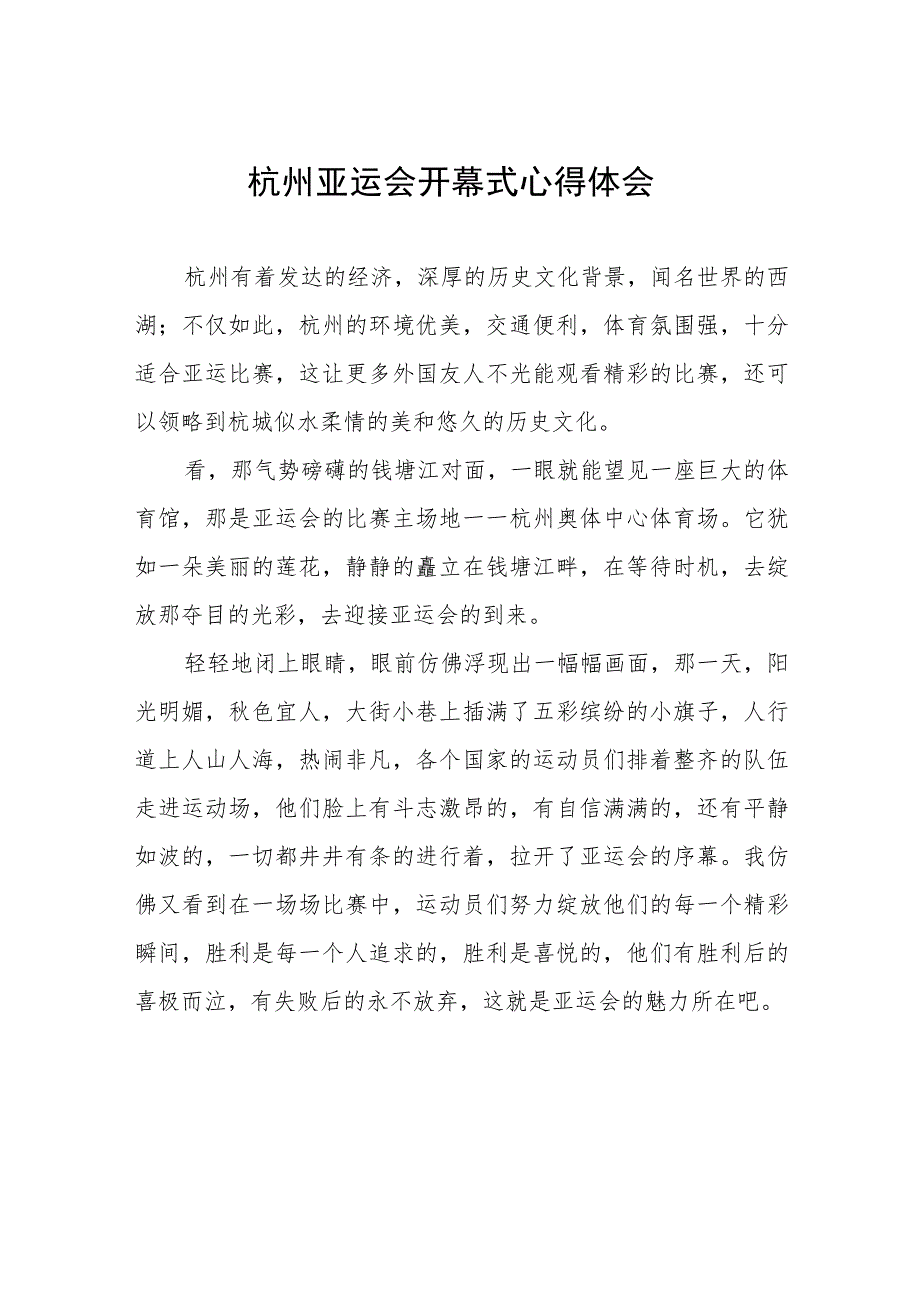 杭州亚运会开幕式心得体会
杭州有着发达的经济，深厚的历史文化背景，闻名世界的西
湖；不仅如此，杭州的环境优美，交通便利，体育氛围强，十分
适合亚运比赛，这让更多外国友人不光能观看精彩的比赛，还可
以领略到杭城似水柔情的美和悠久的历史文化。
看，那气势磅礴的钱塘江对面，一眼就能望见一座巨大的体
育馆，那是亚运会的比赛主场地一一杭州奥体中心体育场。它犹
如一朵美丽的莲花，静静的矗立在钱塘江畔，在等待时机，去绽
放那夺目的光彩，去迎接亚运会的到来。
轻轻地闭上眼睛，眼前仿佛浮现出一幅幅画面，那一天，阳
光明媚，秋色宜人，大街小巷上插满了五彩缤纷的小旗子，人行
道上人山人海，热闹非凡，各个国家的运动员们排着整齐的队伍
走进运动场，他们脸上有斗志激昂的，有自信满满的，还有平静
如波的，一切都井井有条的进行着，拉开了亚运会的序幕。我仿
佛又看到在一场场比赛中，运动员们努力绽放他们的每一个精彩
瞬间，胜利是每一个人追求的，胜利是喜悦的，他们有胜利后的
喜极而泣，有失败后的永不放弃，这就是亚运会的魅力所在吧。